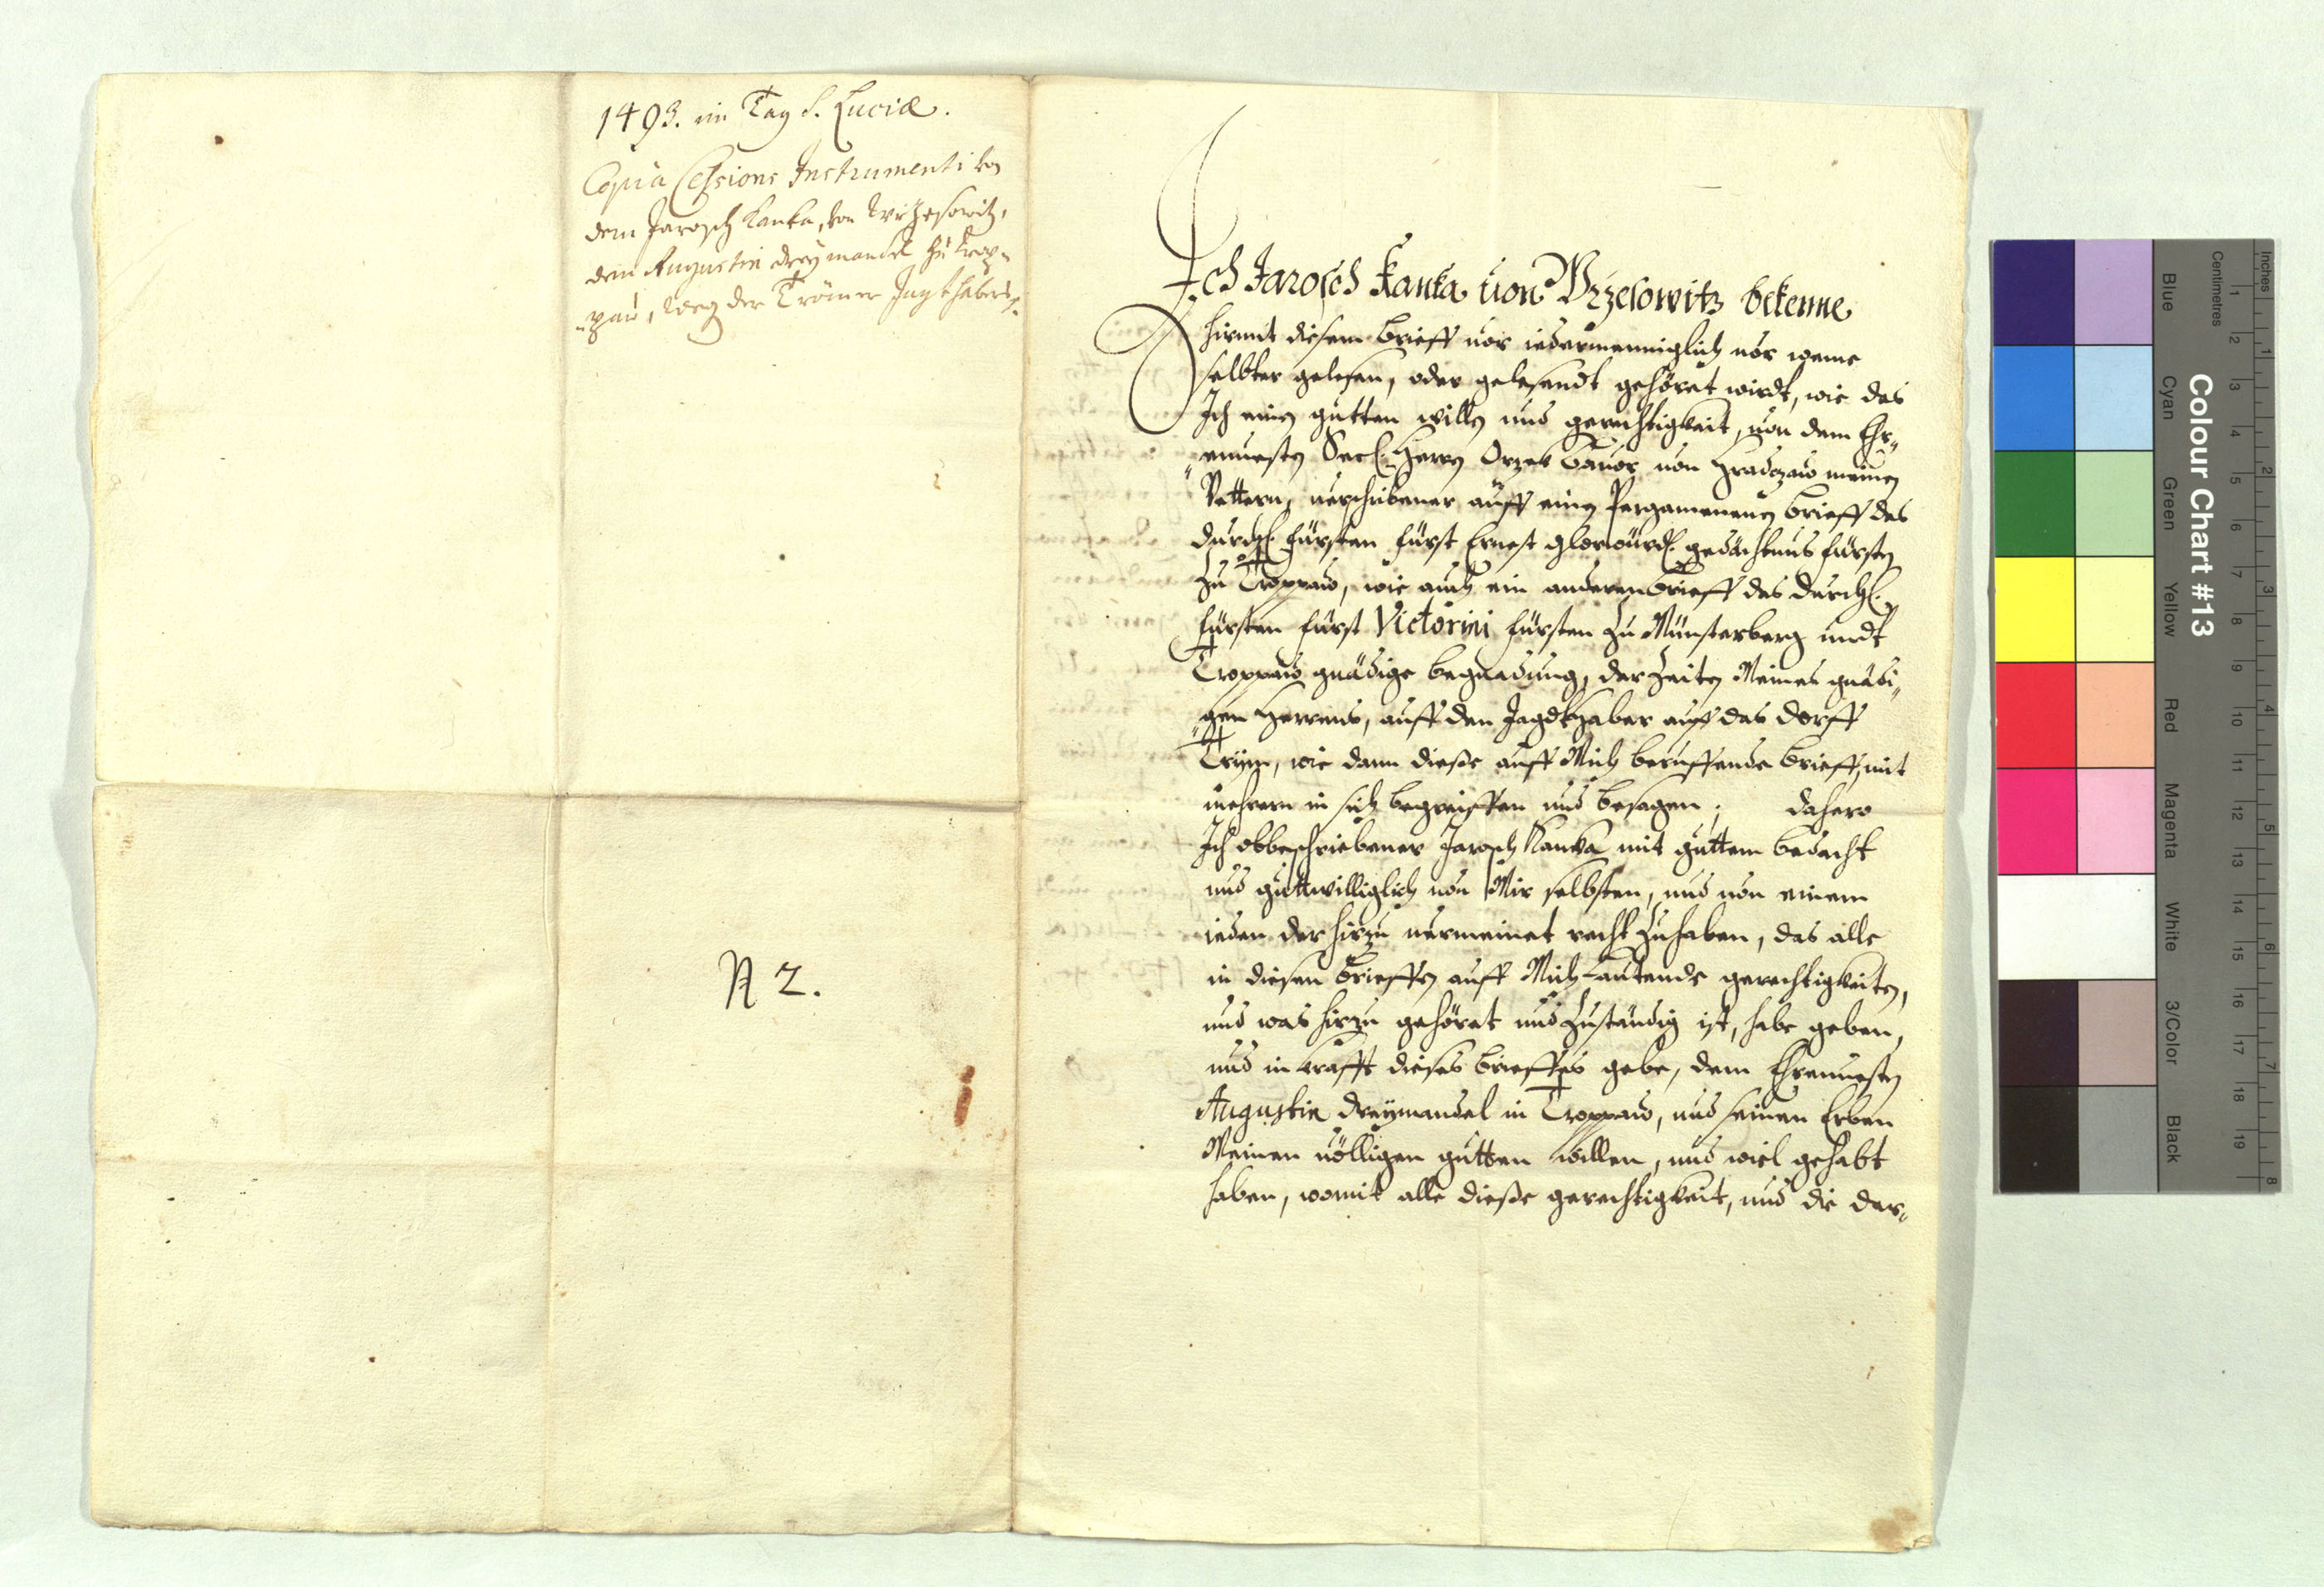 1493. im Tag S. Luciæ.
Copia Cessions Instrumenti von
dem Jarosch Kanka, von Wrzesowitz,
dem Augustin Dreymandel zu Trop-
-pau, weg der Trömer Jagthabers
N 2.
Ich Jarosch Kanka uon Wrzesowitz bekenne
hirmit diesem brieff uor iedermenniglich uor weme
selbter gelesen, oder gelesendt gehöret wirdt, wie das
Ich einen gutten willen und gerechtigkeit, von dem Ehr-
-enuesten Seel. Herrn Orzek von Hradczan meinen
Vettern, uerschribener auff einen Pergamenenen brieff des
durchl. fürsten fürst Ernest gedächtnus fürsten
zu Troppaw, wie auch ein anderen brieff des durchl.
fürsten fürst Victorini fürsten zu Münsterberg undt
Troppaw gnädige begnadung, der Zeiten Meines gnädi-
-gen Herrens, auff den Jagdthaber auff das dorff
Trzym, wie dann dieße auff Mich beruffende brieff, mit
mehrern in sich begreiffen und besagen. dahero
Ich obbeschriebener Jarosch Kanka mit guttem bedacht
und guttwilliglich uon Mir selbsten, und uon einem
ieden der hirzu uermeinet recht zu haben, das alle
in diesen brieffen auff Mich Lautende gerechtigkeiten,
und was hirzu gehöret und zuständig ist, habe geben,
und in krafft dieses brieffes gebe, dem Ehrenuesten
Augustin Dreymandel in Troppaw, und seinen Erben
Meinen uölligen gutten willen, und wiel gehabt
haben, womit alle dieße gerechtigkeit, und die dar-
Inches
Centimetres
1 2 3 4 5 6 7 8 9 10 11 12 13 14 15 16 17 18 19
1 2 3 4 5 6 7 8
Colour Chart #13
Blue
Cyan
Green
Yellow
Red
Magenta
White
3/Color
Black